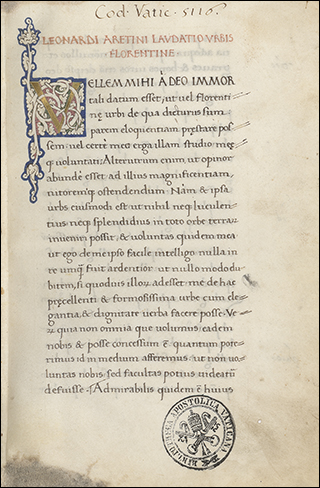 Cod. Vatic. 5116.
LEONARDI ARETINI LAVDATIO VRBIS
FLORENTINE
VELLEM MIHI A DEO IMMOR
tali datum esset, ut uel florenti
nę urbi de qua dicturus sum
parem eloquentiam pręstare pos
sem, uel certe meo erga illam studio meę
q; uoluntati. Alterutrum enim ut opinor
abunde esset ad illius magnificentiam,
nitoremq; ostendendum. Nam & ipsa
urbs eiusmodi est ut nihil neq; luculen
tius neq; splendidius in toto orbe terraꝝ
inueniri possit, & uoluntas quidem mea
ut ego de meipso facile intelligo nulla in
re umq̃ fuit ardentior ut nullo modo du
bitem, si quoduis illoꝝ adesset me de hac
pręcellenti & formosissima urbe cum ele
gantia & dignitate uerba facere posse. Ve
ꝝ quia non omnia que uolumus eadem
nobis & posse concessum ẽ quantum pote
rimus id in medium afferemus ut non uo
luntas nobis sed facultas potius uideatur
defuisse. Admirabilis quidem ẽ huius
BIBLIOTHECA APOSTOLICA VATICANA